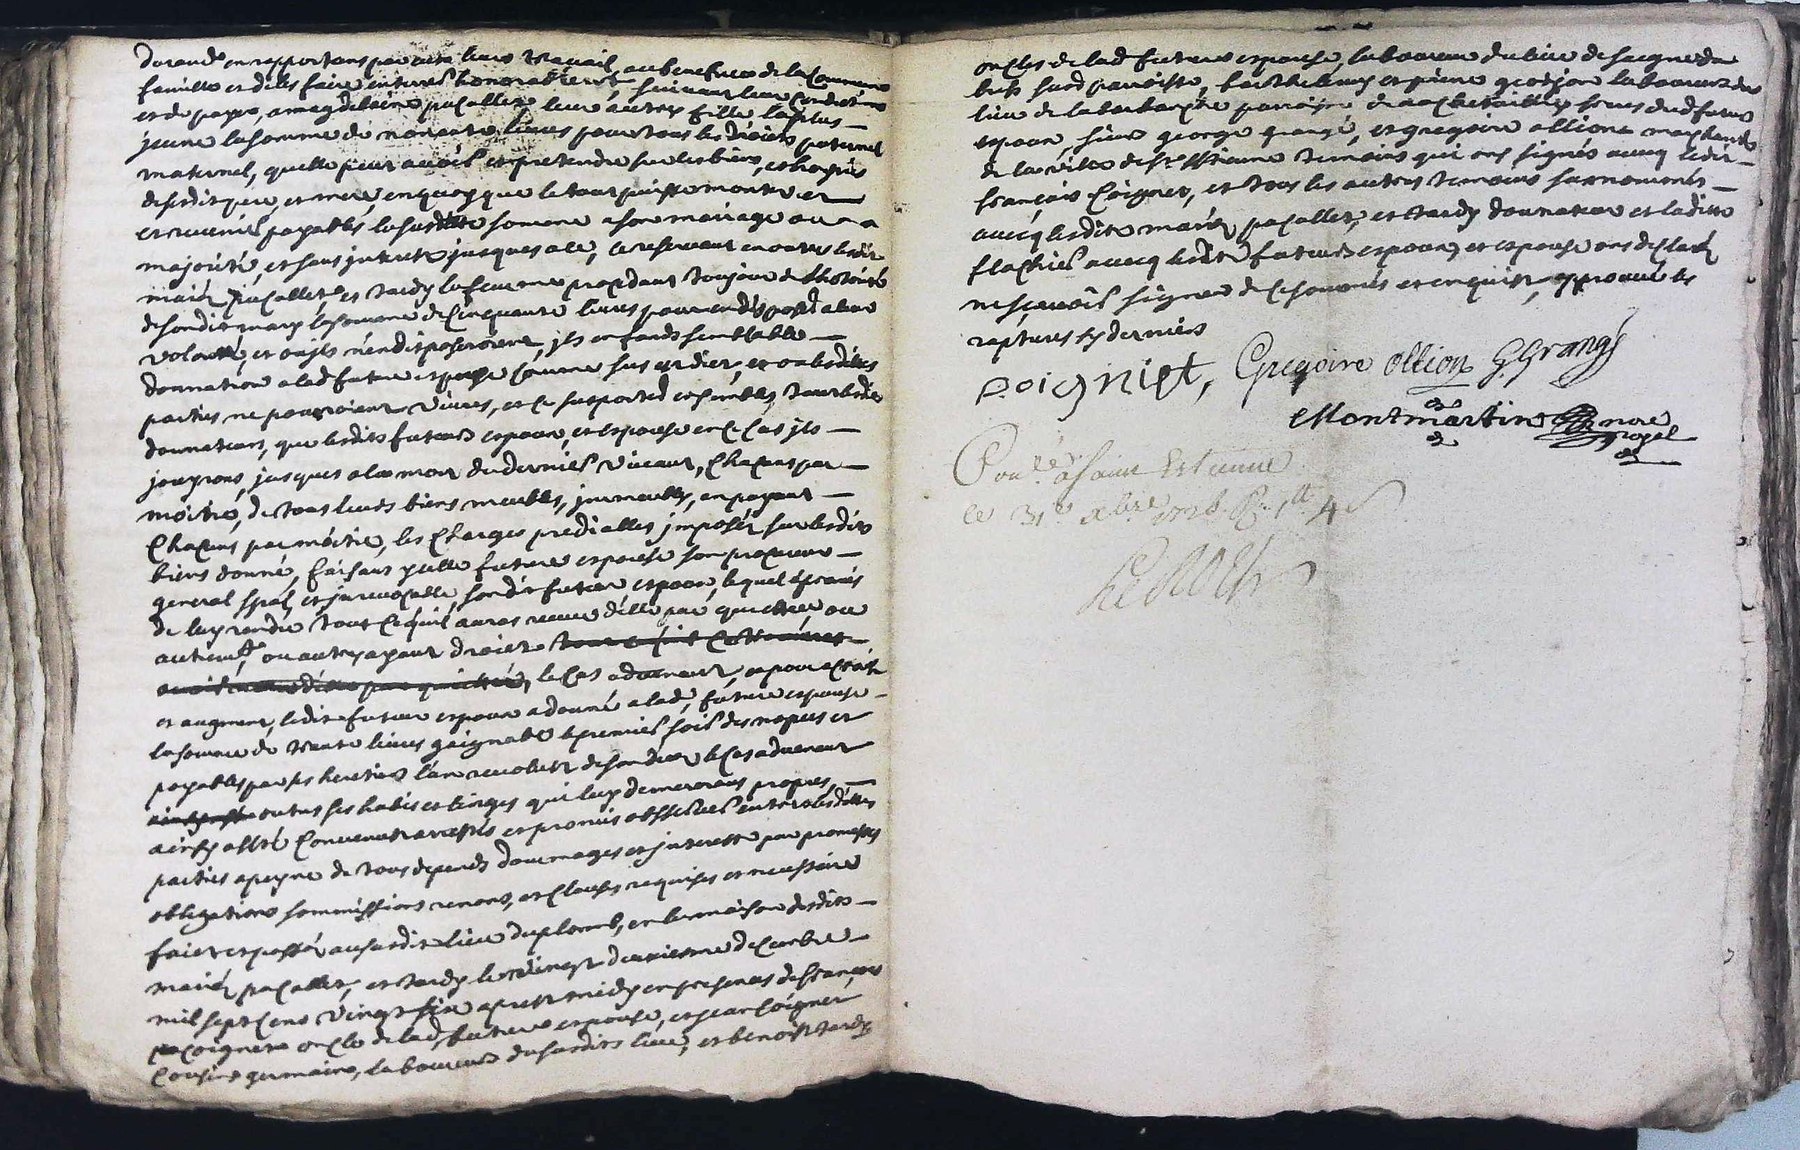 durand en rapportans par eux leurs travail au benefices de la commune
famille et d'elles faire enterrer honorablement, suivant leur conditions
et de payer, a magdelaine pacallet leur autres fille la plus
jeune la somme de nonante livres pour tous les droicts paternel
maternel, quelle peut avoir et pretendre sur les biens, et hoyries
desdit pere, et mere, en quoy que le tout puisse monter et
et revenir payables la susditte somme a son mariage ou a
majorité, et sans jnterets jusques a ce, ce reservant en outres lesdits
mariés pacallet, et tardy la femme procedant toujour de l'hotorité
de sondit mary la somme de cinquante livres pour en disposer a leur
volonté, et ou jls n'en disposeroient, jls en fonds semblable
donnation a lad future espouse comme sus est dit, et ou lesdittes
parties ne pourroient vivres, et ce suporter ensembles, tant lesdits
donnateurs, que lesdits futeurs espoux, et espouse en ce cas jls
jouyrons, jusques a la mort du dernier vivant, chacuns par
moitié, de tous leurs biens meubles, jmmeubles, en payant
chacuns par moitié, les charges predialles jmposés sur lesdits
biens donné, faisant ycelle future espouse son procureur
general spal, et jrrevocable, sondit futeur espoux, lequel
de luy rendre tout ce quil auras receu d'elle par quittance ou
autremt, ou autres ayant droict
le cas advenant, et pour
et augment, ledit futeur espoux a donné a lad, future espouse
la somme de trante livres gaignable le premier soir des nopces et
payables par ses heretiers l'an revolut de son deces le cas advenant
outres ses habis et linges qui luy demererons propres,
ainsy a esté convenut arrettés et promis observer entre lesdittes
parties a peyne de tous depends dommages et jnterests par promesses
obligations sommissions renons, et clauses requises et necessaire
faict et passés au susdit lieu du plomb, en la maison desdits
mariés pacallet, et tardy le vingt deuxiesme decembre
mil sept cens vingt six apres midy en presences de françois
coignet oncle de lad, future espouse, et jean coignet
cousins germains, laboureurs du susdits lieu, et benoist tardy
oncles de lad future espouse, laboureur du lieu de
susd parroisse, barthelemy et pierre grosjon laboureurs du
lieu de la barbanche parroisse de rochetaillée freres dud futeur
espoux, sieur george grangé, et gregoire allione marchands
de la ville de st estienne temoins qui ons signés avecq ledit
françois coignet, et tous les autres temoins surnommés
avecq lesdits mariés pacallet, et tardy donnateur et laditte
flachier avecq lesdits futeurs espoux, et espouse ons declarés
ne sçavoir signer de ce sommés et enquist, approuvé les
raptures sy derniers
P. oignipt, Gregoire Ollion G Grangé
Montmartin nore
royal
Conlé a Saint Estienne
le 31e xbre 1726 R. 1lt 4 s